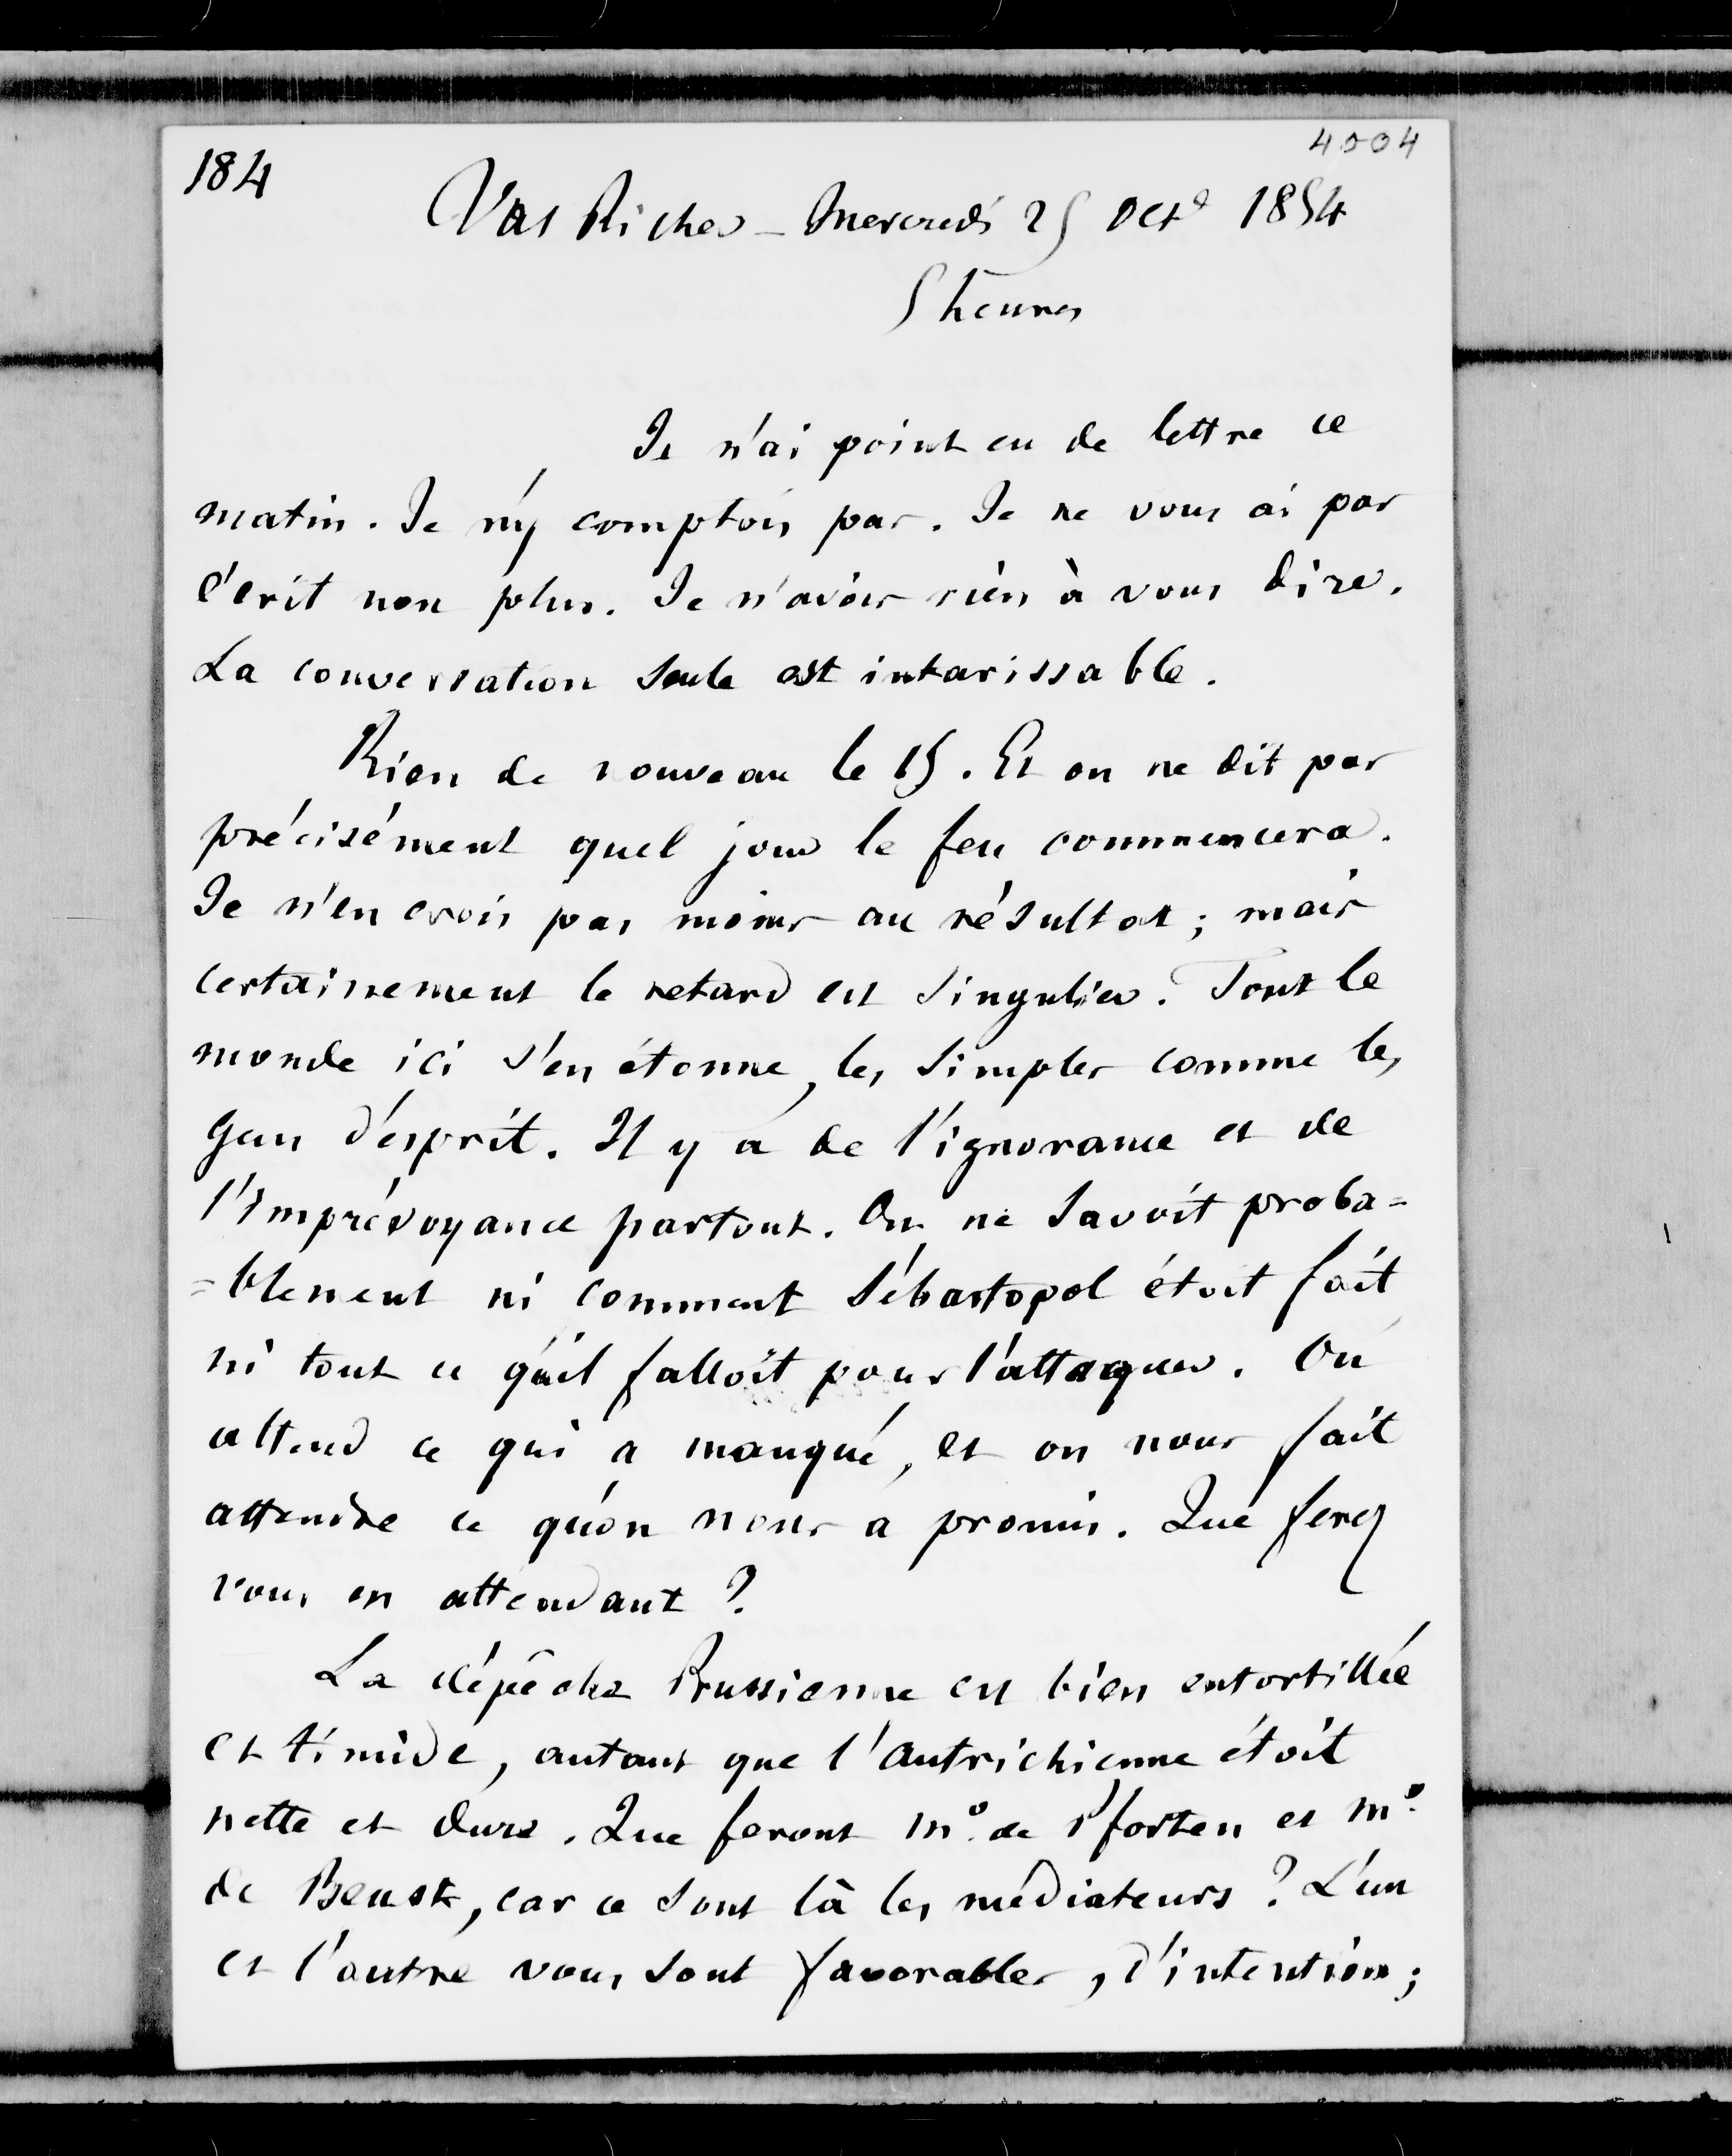 184
4004
Val Richer - Mercredi 25 Oct° 1854
5 heures
Je n'ai point eu de lettre ce
matin. Je n'y comptois pas. Je ne vous ai pas
écrit non plus. Je n'avois rien à vous dire.
La conversation seule est intarissable.
Rien de nouveau le 15. Et on ne dit pas
précisément quel jour le feu commencera.
Je n'en crois pas moins au résultat ; mais
certainement le retard est singulier. Tout le
monde ici s'en étonne, les simples comme les
gens d'esprit. Il y a de l'ignorance et de
l'imprévoyance partout. On ne savoit proba=
=blement ni comment Sébastopol étoit fait
ni tout ce qu'il falloit pour l'attaquer. On
attend ce qui a manqué, et on nous fait
attendre ce qu'on nous a promis. Que ferez
vous en attendant ?
La dépêche Prussienne est bien entortillée
et timide, autant que l'autrichienne étoit
nette et dure. Que feront M° de Pfordten et M°
de Beust, car ce sont là les médiateurs ? L'un
et l'autre vous sont favorables, d'intention ;